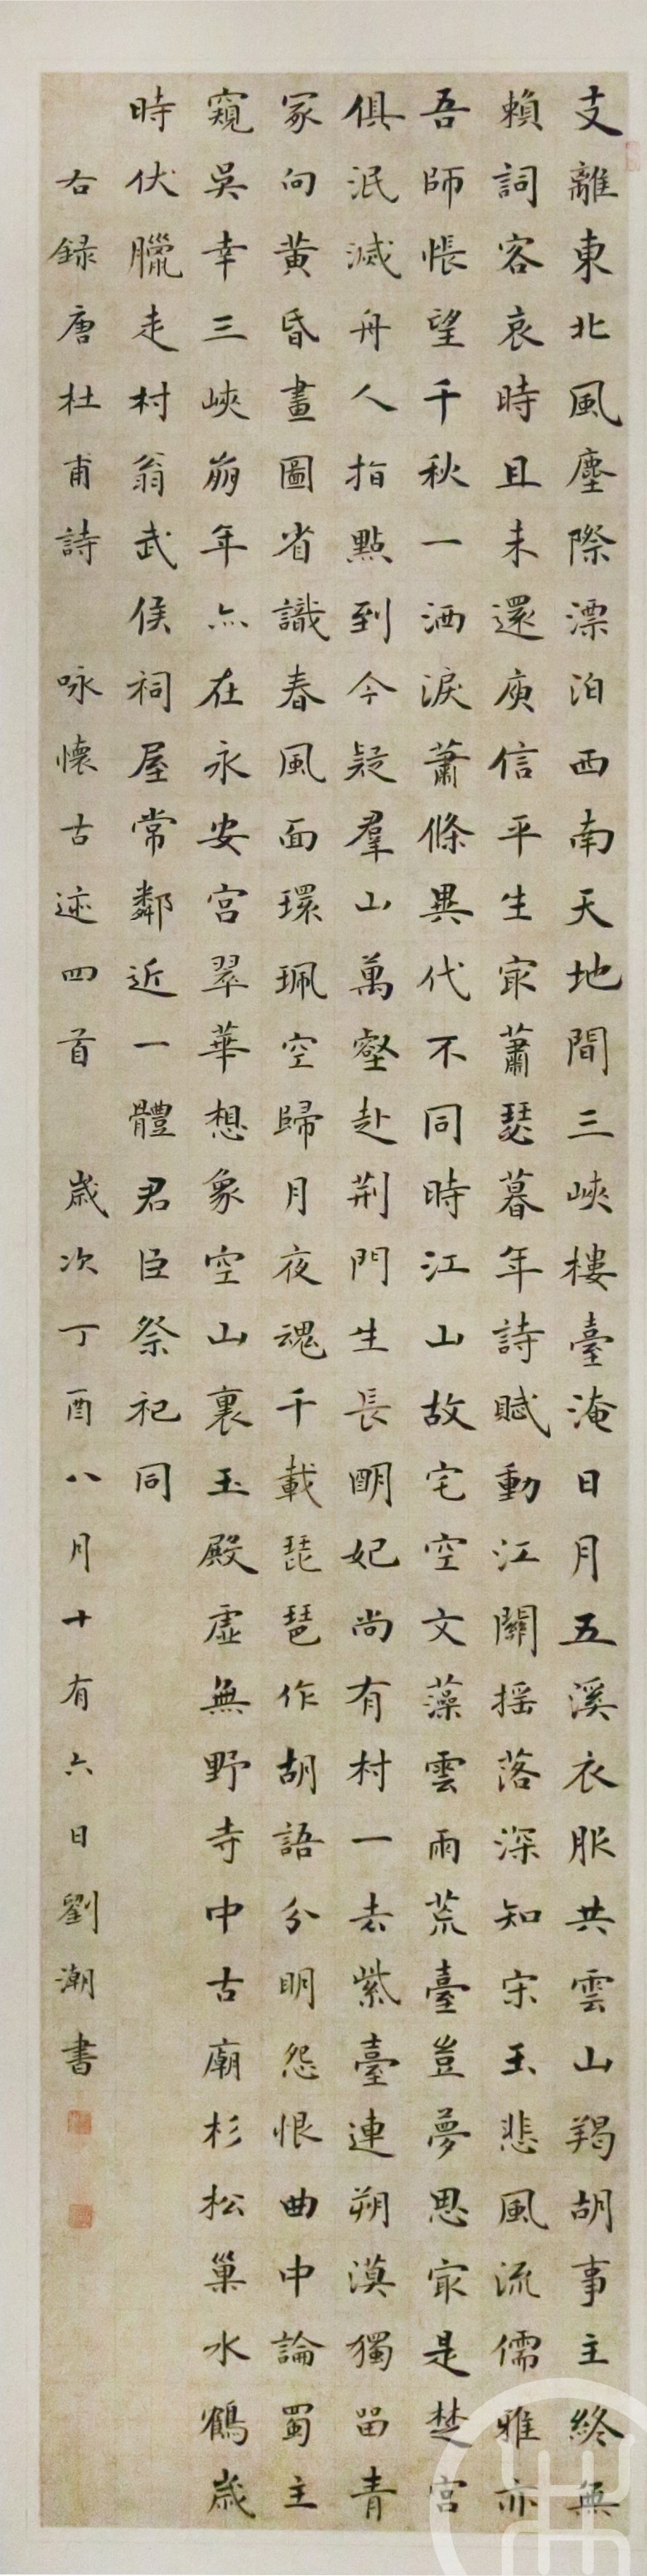 支離東北風塵際漂泊西南天地間三峽樓臺淹日月五溪衣服共雲山羯胡事主終無
賴詞客哀時且未還庾信平生㝡蕭瑟暮年詩賦動江關搖落深知宋玉悲風流儒雅亦
吾師悵望千秋一洒淚蕭條異代不同時江山故宅空文藻雲雨荒臺豈夢思㝡是楚宮
俱泯滅舟人指點到今疑羣山萬壑赴荆門生長明妃尚有村一去紫臺連朔漠獨留青
冢向黃昏畫圖省識春風面環珮空歸月夜魂千載琵琶作胡語分明怨恨曲中論蜀主
窺吳幸三峽崩年亦在永安宮翠華想象空山裏玉殿虛無野寺中古廟杉松巢水鶴歲
時伏臘走村翁武侯祠屋常鄰近一體君臣祭祀同
右録唐杜甫詩 咏懷古迹四首 歲次丁酉八月十有六日劉潮書